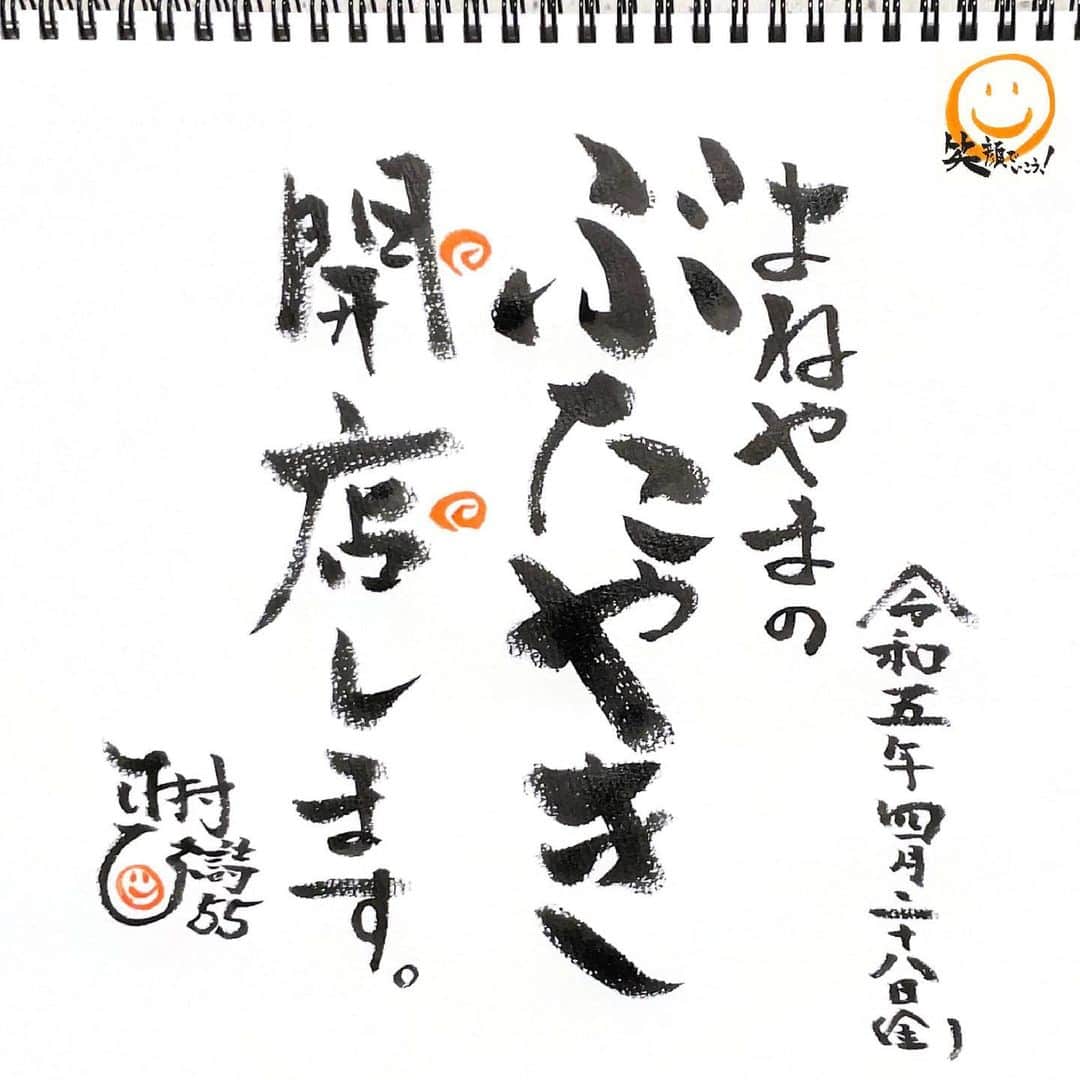 笑顔でいこう!
令和五年四月二十八日(金)
はねやまの
ぶたやき
開店します。